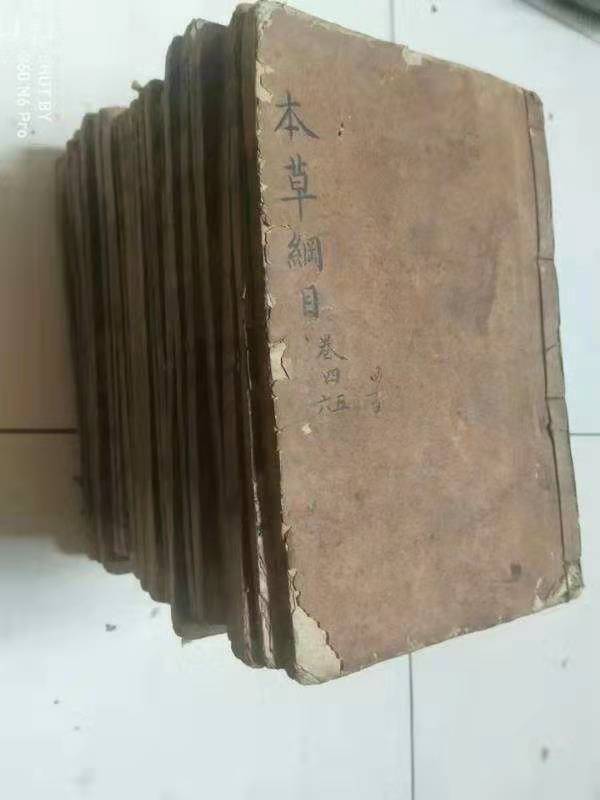 本草綱目
卷四五六
SHOT BY
360 N6 Pro